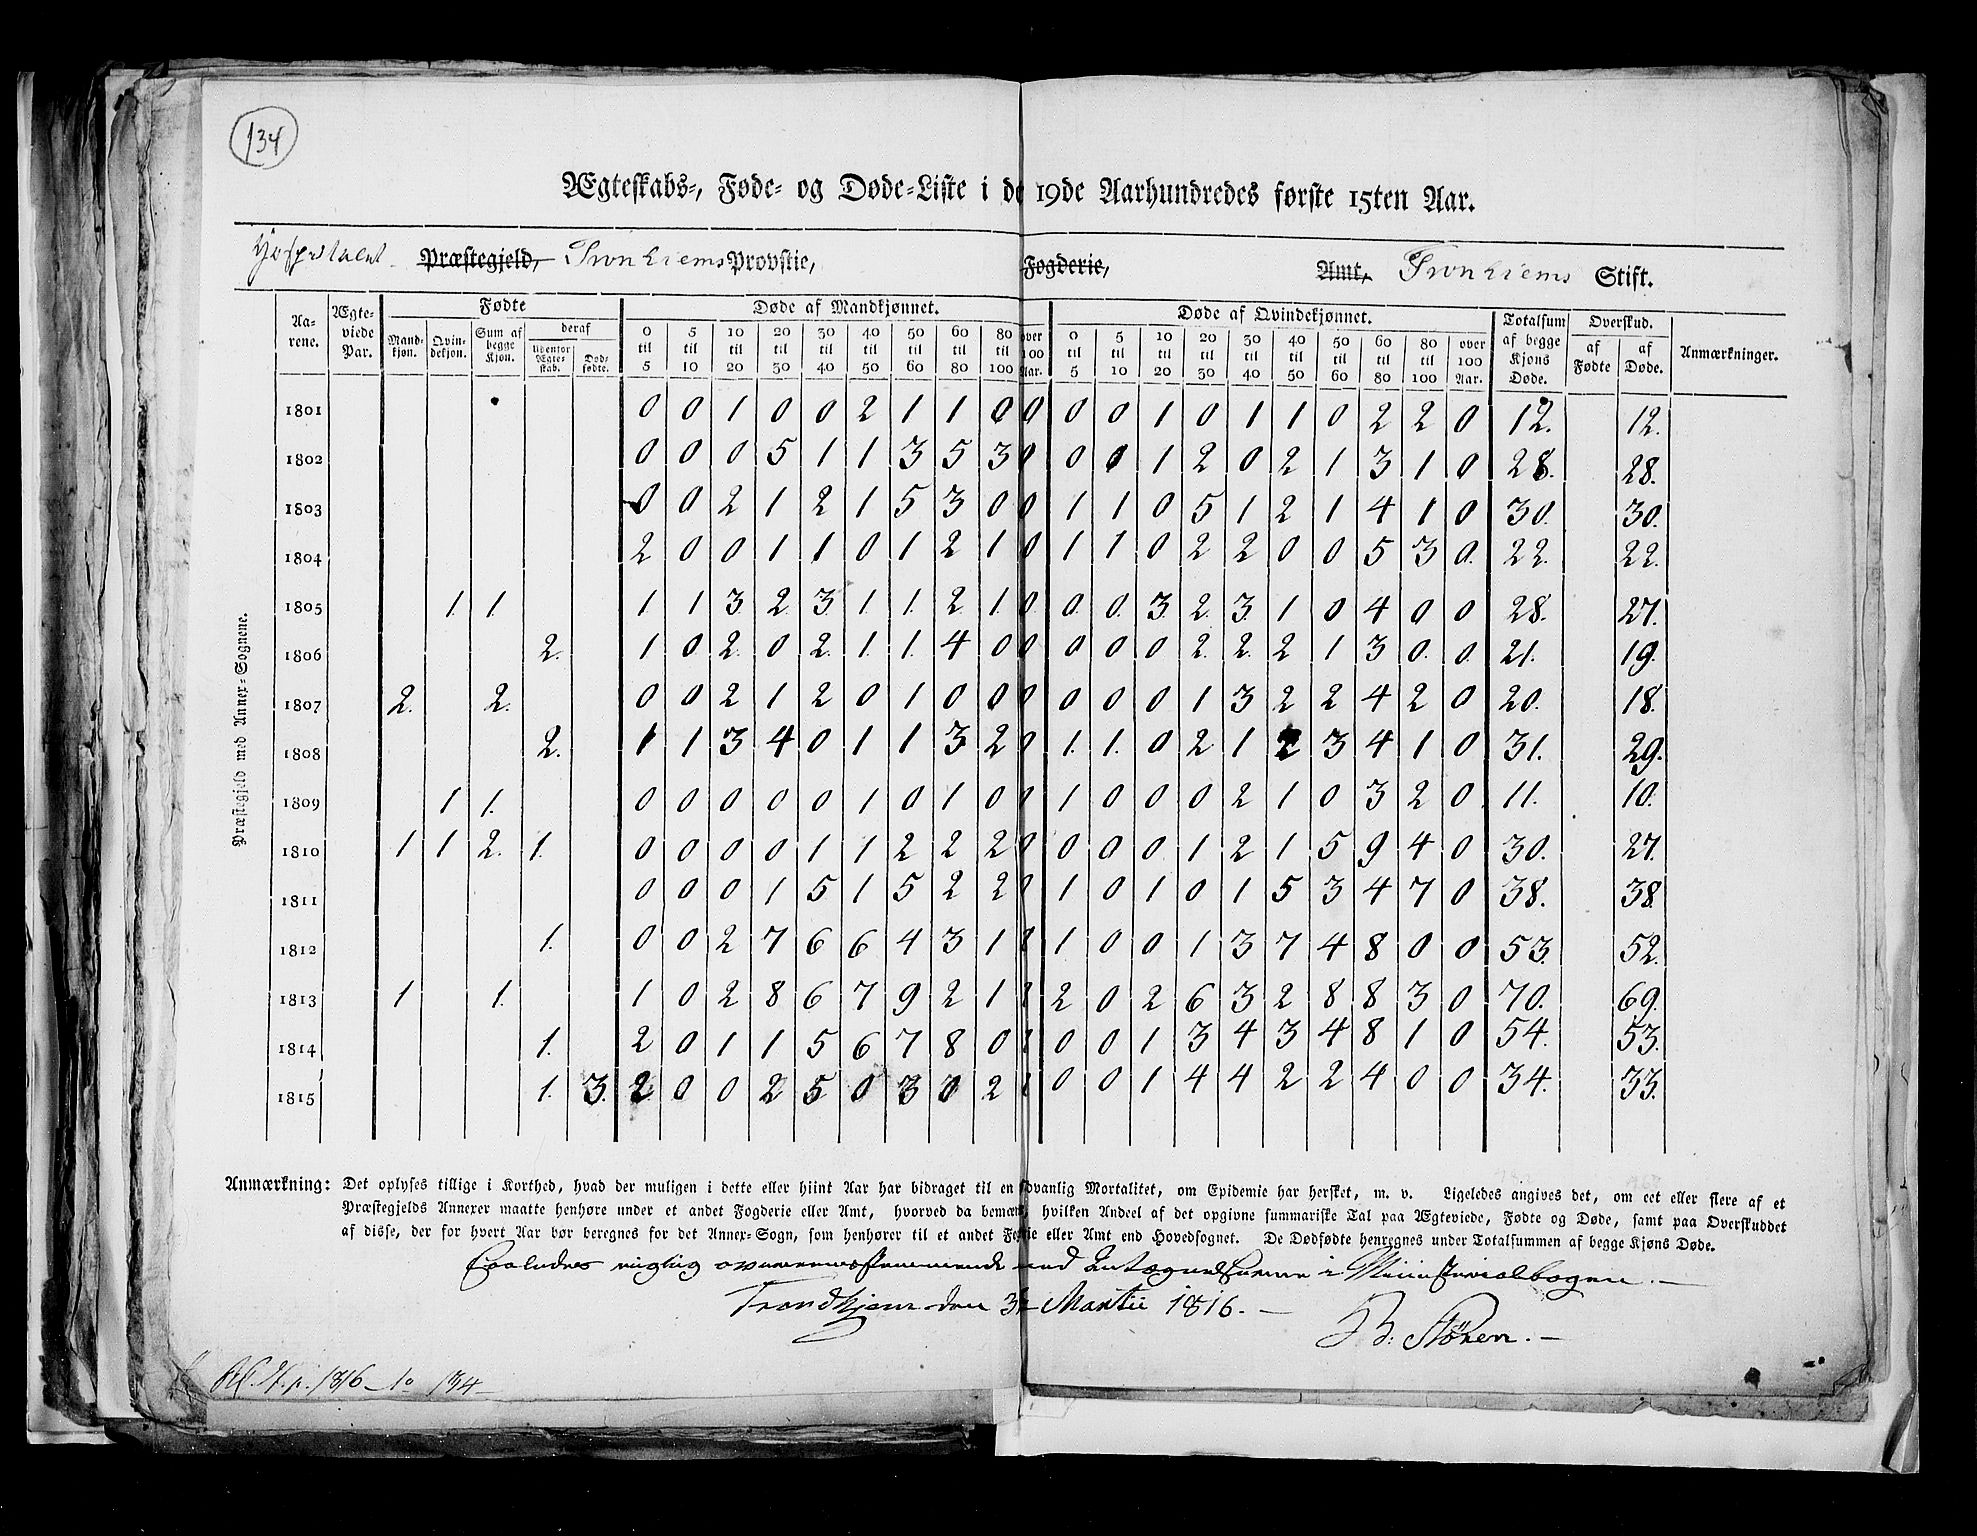 134
Ægteskabs-, Føde- og Døde-Liste i de 19de Aarhundredes første 15ten Aar.
Hospitalet Præstegjeld, Tronhiems Provstie, Fogderie, Amt, Tronhiems Stift.
Præstegjeld med Annex-Sognene.
Aarene. Ægteviede Par. Fødte Døde af Mandkjønnet. Døde af Qvindekjønnet. Totalsum af begge Kjøns Døde. Overskud. Anmærkninger.
Mandkjøn. Qvindekjøn. Sum af begge Kjøn. deraf Udenfor Ægteskab. Dødfødte. 0 til 5 5 til 10 10 til 20 20 til 30 30 til 40 40 til 50 50 til 60 60 til 80 80 til 100 over 100 Aar. 0 til 5 5 til 10 10 til 20 20 til 30 30 til 40 40 til 50 50 til 60 60 til 80 80 til 100 over 100 Aar. af Fødte af Døde.
1801 0 0 1 0 0 2 1 1 0 0 0 0 1 0 1 1 0 2 2 0 12. 12.
1802 0 0 0 5 1 1 3 5 3 0 0 0 1 2 0 2 1 3 1 0 28. 28.
1803 0 0 2 1 2 1 5 3 0 0 1 1 0 5 1 2 1 4 1 0 30. 30.
1804 2 0 0 1 1 0 1 2 1 0 1 1 0 2 2 0 0 5 3 0. 22. 22.
1805 1. 1. 1. 1 3 2. 3. 1 1. 2 1. 0 0. 0. 3. 2. 3. 1 0 4 0 0 28. 27.
1806 2. 1 0 2. 0 2. 1. 1. 4 0 0 0 0 0 2. 2. 2 1 3 0. 0. 21. 19.
1807 2. 2. 0 0 2 1 2 0 1 0 0 0 0 0 0 1 3 2 2 4 2 0 20. 18.
1808 2. 1 1 3 4 0 1 1 3 2 0 1. 1. 0 2 1 2 3 4 1 0 31. 29.
1809 1 1. 0 0 0 0 0 1 0 1 0 0 1 0 0 0 2 1 0 3 2 0 11. 10.
1810 1 1 2. 1. 0 0 0 0 1 1 2 2 2 0 0 0 0 1 2 1 5 9 4 0 30. 27.
1811 0 0 0 1 5 1 5 2 2 0 1 0 1 0 1 5 3 4 7 0 38. 38
1812 1. 0 0 2 7 6 6 4 3 1 0 1 0 0 1 3 7 4 8 0 0 53. 52.
1813 1 1. 1 0 2 8 6 7 9 2 1 0 2 0 2 6 3 2 8 8 3 0 70. 69.
1814 1. 2 0 1 1 5 6 7 8 0 0 0 0 1 3 4 3 4 8 1 0 54. 53.
1815 1. 3. 2 0 0 2 5 0 3 0 2 0 0 0 1 4 4 2 2 4 0 0 34. 33.
Anmærkning: Det oplyses tillige i Korthed, hvad der muligen i dette eller hiint Aar har bidraget til en sædvanlig Mortalitet, om Epidemie har hersket, m. v. Ligeledes angives det, om eet eller flere af et
Præstegjelds Annexer maatte henhøre under et andet Fogderie eller Amt, hvorved da bemærk, hvilken Andeel af det opgivne summariske Tal paa Ægteviede, Fødte og Døde, samt paa Overskuddet
af disse, der for hvert Aar bør beregnes for det Annex-Sogn, som henhører til et andet Fogderie eller Amt end Hovedsognet. De Dødfødte henregnes under Totalsummen af begge Kjøns Døde.
Saaledes rigtig overeensstemmende med Antegnelserne i Ministerialbogen.
Trondhjem den Martii 1816.
B:
134